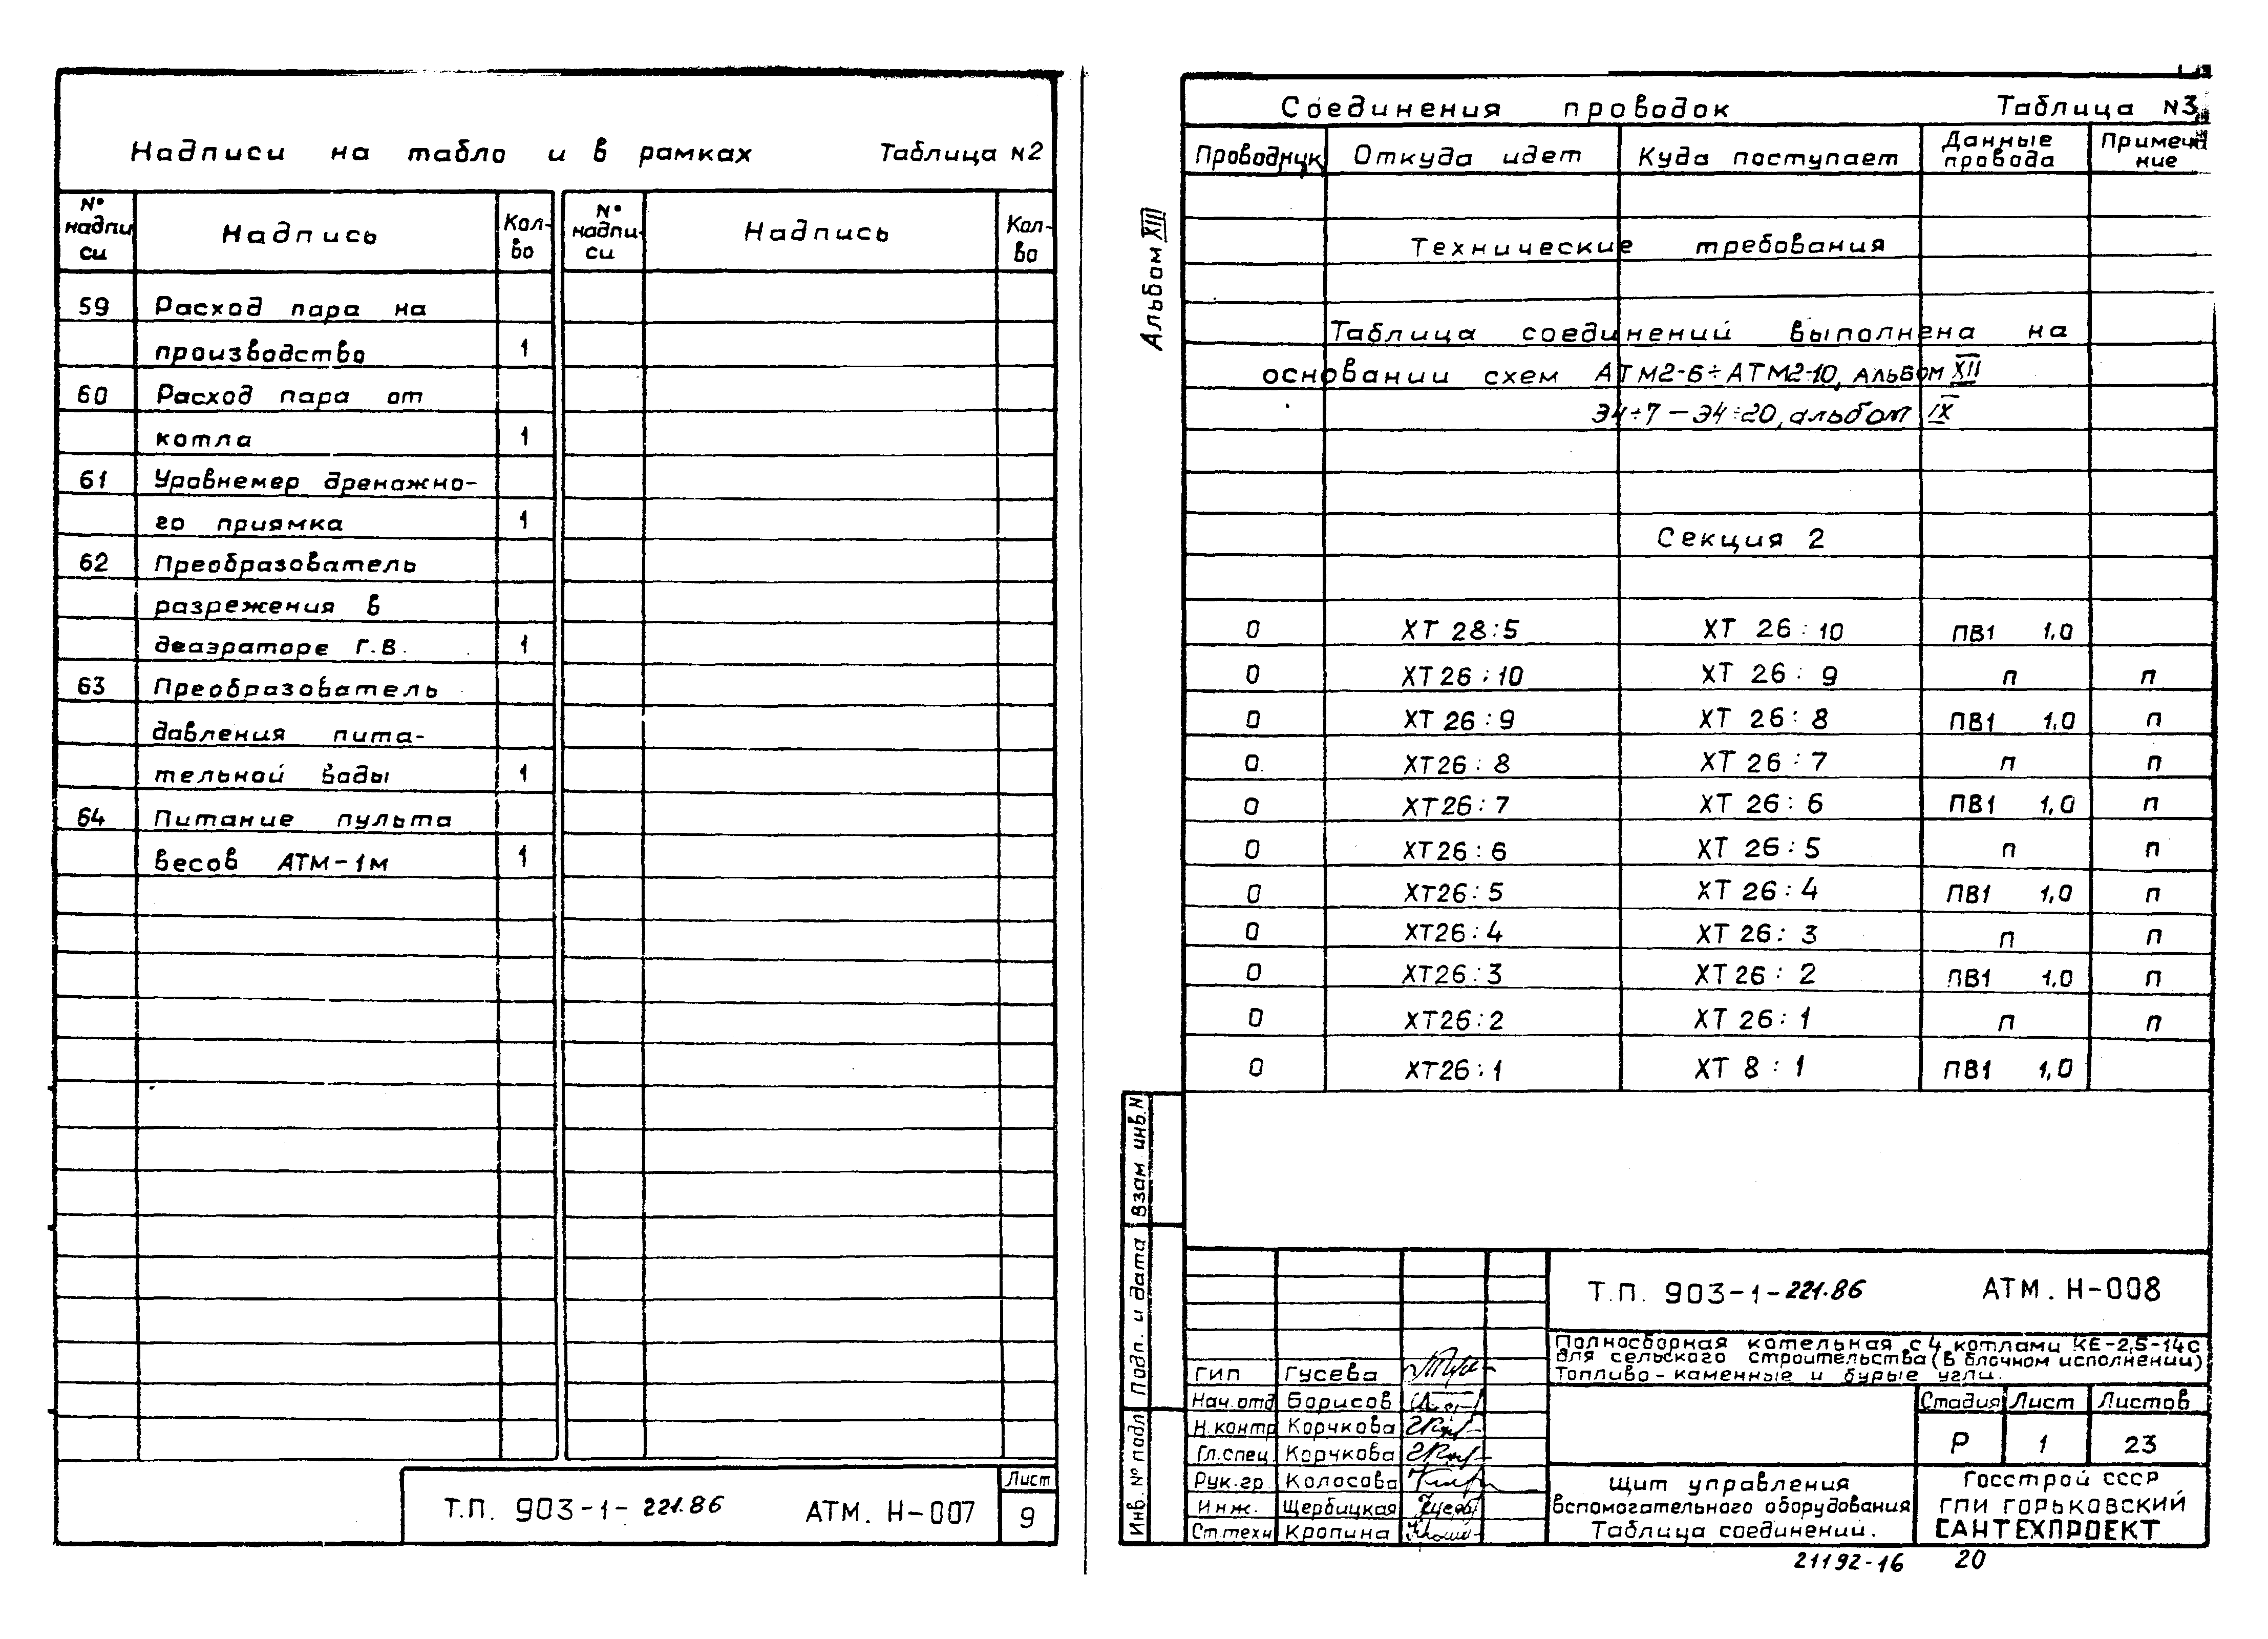 Надписи на табло и в рамках Таблица N2
№ надписи Надпись Кол-во № надпи-си Надпись Кол-во
59 Расход пара на
производство 1
60 Расход пара от
котла 1
61 Уровнемер дренажно-
го приямка 1
62 Преобразователь
разрежения в
деаэраторе Г.В. 1
63 Преобразователь
давления пита-
тельной воды 1
64 Питание пульта
весов АТМ-1м 1
Т.П. 903-1-221.86 АТМ. Н-007 Лист 9
Альбом XIII
Соединения проводок Таблица N3
Проводник Откуда идет Куда поступает Данные провода Примечание
Технические требования
Таблица соединений выполнена на
основании схем АТМ2-6÷АТМ2-10, Альбом XII
Э4÷7-Э4÷20, альбом IX
Секция 2
0 ХТ 28:5 ХТ 26:10 ПВ1 1,0
0 ХТ26:10 ХТ 26:9 п п
0 ХТ 26:9 ХТ 26:8 ПВ1 1,0 п
0 ХТ26:8 ХТ 26:7 п п
0 ХТ26:7 ХТ 26:6 ПВ1 1,0 п
0 ХТ26:6 ХТ 26:5 п п
0 ХТ26:5 ХТ 26:4 ПВ1 1,0 п
0 ХТ26:4 ХТ 26:3 п п
0 ХТ26:3 ХТ26:2 ПВ1 1,0 п
0 ХТ26:2 ХТ 26:1 п п
0 ХТ26:1 ХТ 8:1 ПВ1 1,0
Взам. инв. N
Подп. и дата
Инв. № подл
Т.П. 903-1-221.86 АТМ. Н-008
Полносборная котельная с 4 котлами КЕ-2,5-14с
для сельского строительства (в блочном исполнении)
Топливо-каменные и бурые угли.
ГИП Гусева
Нач.отд Борисов
Н.контр Корчкова
Гл.спец. Корчкова
Рук.гр. Колосова
Инж. Щербицкая
Ст.техн Кропина
Стадия Лист Листов
Р 1 23
Щит управления
вспомогательного оборудования
Таблица соединений.
Госстрой СССР
ГПИ ГОРЬКОВСКИЙ
САНТЕХПРОЕКТ
21192-16 20